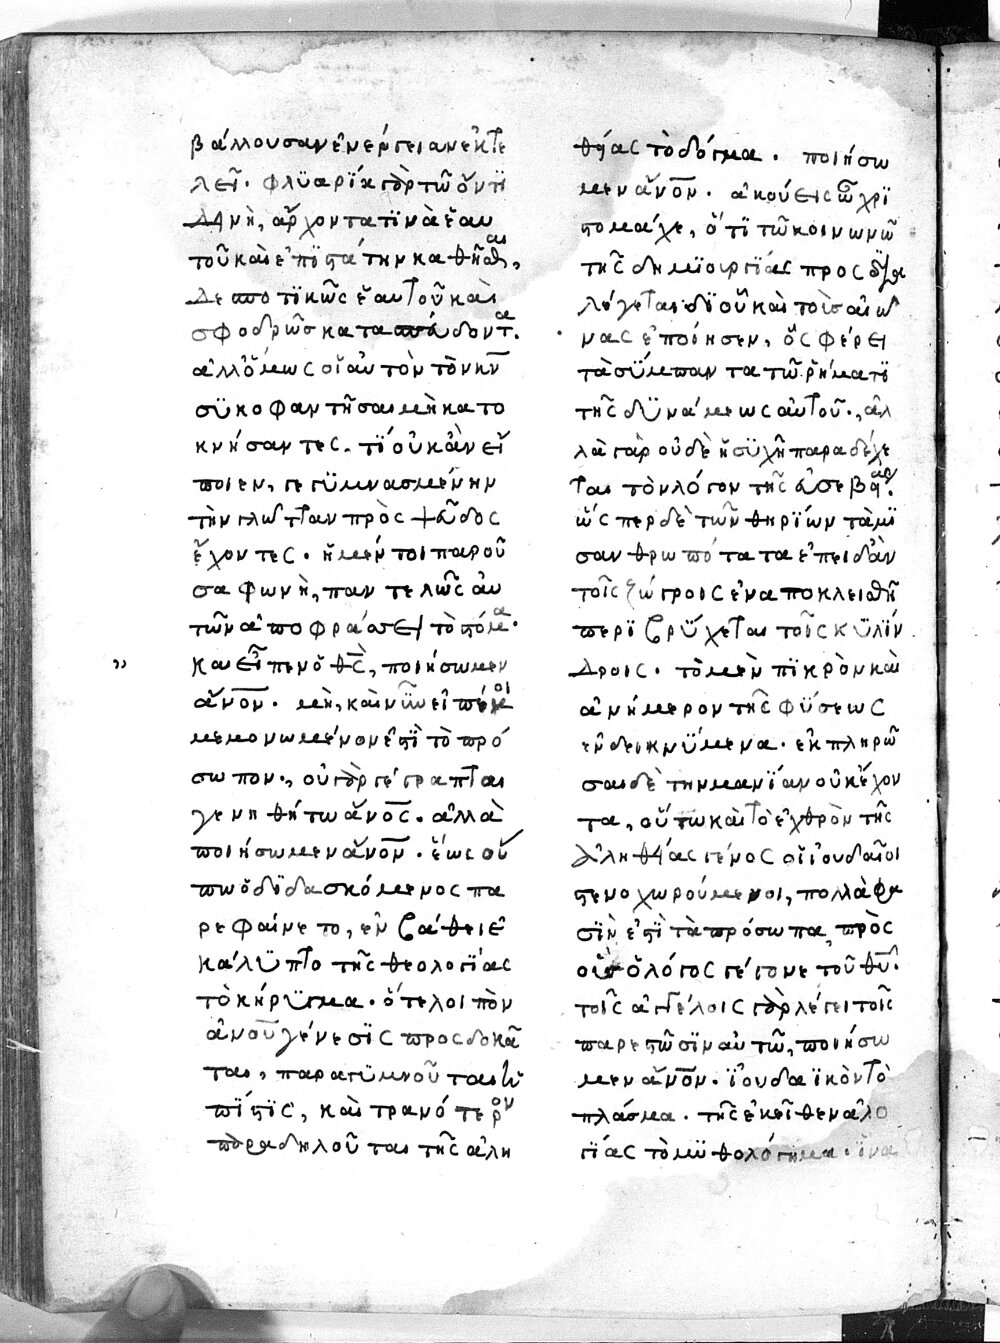 βάλλουσαν ἐνέργειαν ἐκτε
λεῖ· φλϋαρϊα γὰρ τῶ ὄντϊ
δϊνὴ, ἄρχοντα τϊνὰ ἑαυ
τοῦ καὶ ἐπϊστάτην καθῆσθαι,
δεσποτϊκῶς ἑαυτοῦ καὶ
σφοδρῶς κατασπεύδοντα.
ἀλλ ὅμως οἱ αὐτὸν τὸν κν
σϋκοφαντῆσαι μὴ κατο
κνήσαντες· τί οὐκ ἂν εἴ
ποιεν, γεγϋμνασμένην
τὴν γλῶτταν πρὸς ψεῦδος
ἔχοντες· ἡ μέντοι παροῦ
σα φωνὴ, παντελῶς αὐ
τῶν ἀποφράσσει τὸ στόμα·
και εἶπεν ὁ θς, ποιήσωμεν
ἄνον· μὴ, καὶ νῦν εἰπέ μοι
μεμονωμένον ἐστϊ τὸ πρό
σωπον·, οὐ γὰρ γέγραπται
γενηθήτω ἄνος· ἀλλὰ
ποιήσωμεν ἄνον· ἕως οὔ
πω ὁ δϊδασκόμενος πα
ρεφαίνετο, ἐν βάθει ἐ
κάλϋπτο τῆς θεολογίας
τὸ κήρϋγμα· ὅτε λοιπὸν
ἀνου γένεσϊς προσδοκᾶ
ται, παραγϋμνοῦται ἡ
πίστϊς, καὶ τρανότερον
παραδηλοῦται τῆς ἀλη
θείας τὸ δόγμα· ποιήσω
μεν ἄνον· ἀκούεις ὦ χρϊ
στομάχε, ὅτϊ τῶ κοινωνῶ
τῆς δημϊουργϊας προσδϊα
λέγεται· δϊ οὗ καὶ τοὺς αἰῶ
νας ἐποίησεν, ὃς φέρει
τὰ σϋμπαντα τῶ ῥήματϊ
τῆς δϋνάμεως αὐτοῦ·, ἀλ
λὰ γὰρ οὐδὲ ἡσϋχῆ παραδέχε
ται τὸν λόγον τῆς εὐσεβείας·
ὥσπερ δὲ τῶν θηρϊων τὰ μϊ
σανθρωπότατα ἐπειδὰν
τοῖς ζώγροις ἐναποκλεισθῆ
περϊβρϋχεται τοῖς κϋλϊν
δροις· τὸ μὲν πϊκρὸν καὶ
ἀνήμερον τῆς φϋσεως
ἐνδεικνϋμενα· ἐκπληρῶ
σαι δὲ τὴν μανϊαν οὐκ ἔχον
τα, οὕτω καὶ τὸ ἐχθρὸν τῆς
ἀληθείας γένος οἱ ϊουδαῖοι
στενοχωρούμενοι, πολλὰ φα
σϊν ἐστϊ τὰ πρόσωπα, πρὸς
οὓς ὁ λόγος γέγονε τοῦ θυ·
τοῖς ἀγγέλοις γὰρ λέγει τοῖς
παρεστῶσϊν αὐτῶ, ποιήσω
μεν ἄνον· ϊουδαϊκὸν τὸ
πλάσμα· τῆς ἐκεῖθεν ἀλο
γϊας τὸ μϋθολόγημα· ἵνα